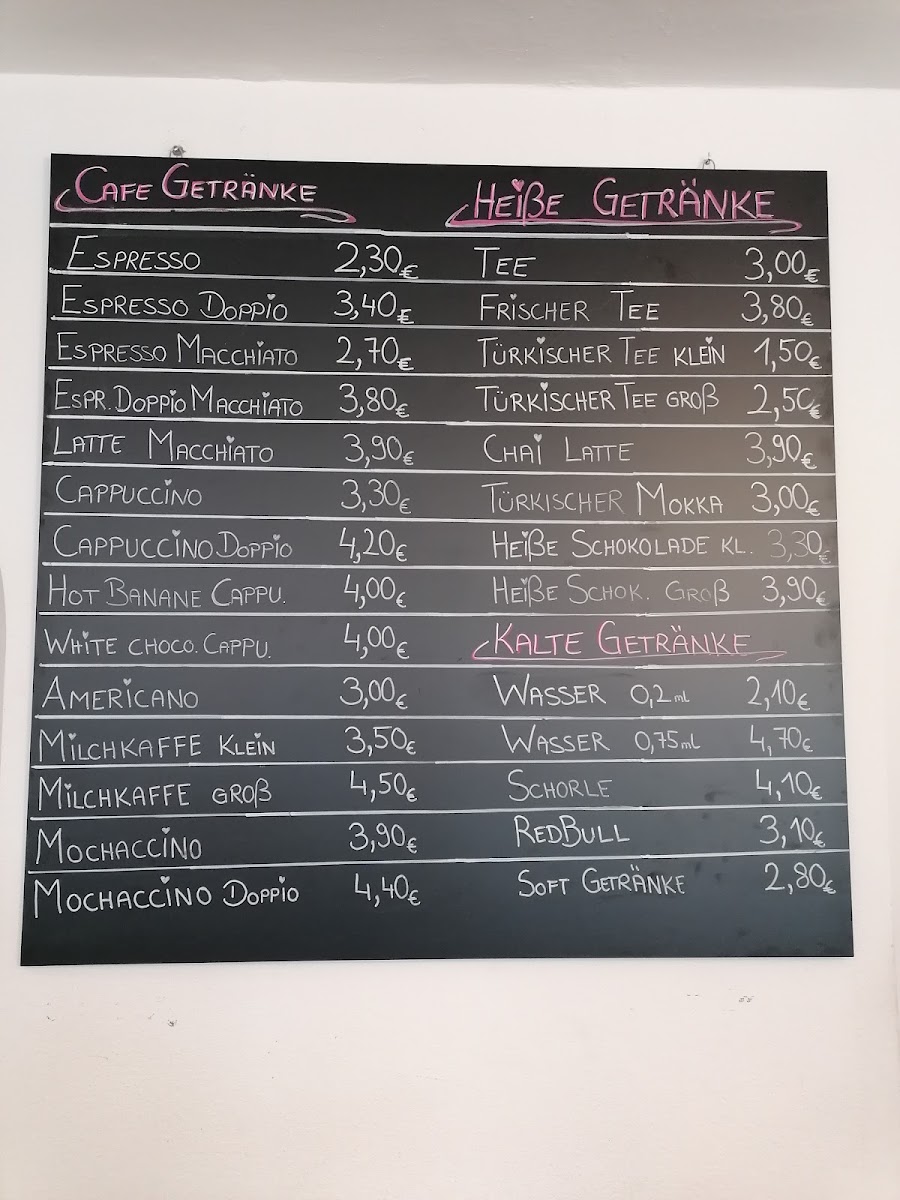 Cafe Getränke
Espresso 2,30€
Espresso Doppio 3,40€
Espresso Macchiato 2,70€
Espr. Doppio Macchiato 3,80€
Latte Macchiato 3,90€
Cappuccino 3,30€
Cappuccino Doppio 4,20€
Hot Banane Cappu. 4,00€
White choco. Cappu. 4,00€
Americano 3,00€
Milchkaffe klein 3,50€
Milchkaffe groß 4,50€
Mochaccino 3,90€
Mochaccino Doppio 4,40€
Heiße Getränke
Tee 3,00€
Frischer Tee 3,80€
Türkischer Tee klein 1,50€
Türkischer Tee groß 2,50€
Chai Latte 3,90€
Türkischer Mokka 3,00€
Heiße Schokolade kl. 3,30€
Heiße Schok. Groß 3,90€
Kalte Getränke
Wasser 0,2ml 2,10€
Wasser 0,75ml 4,70€
Schorle 4,10€
RedBull 3,10€
Soft Getränke 2,80€